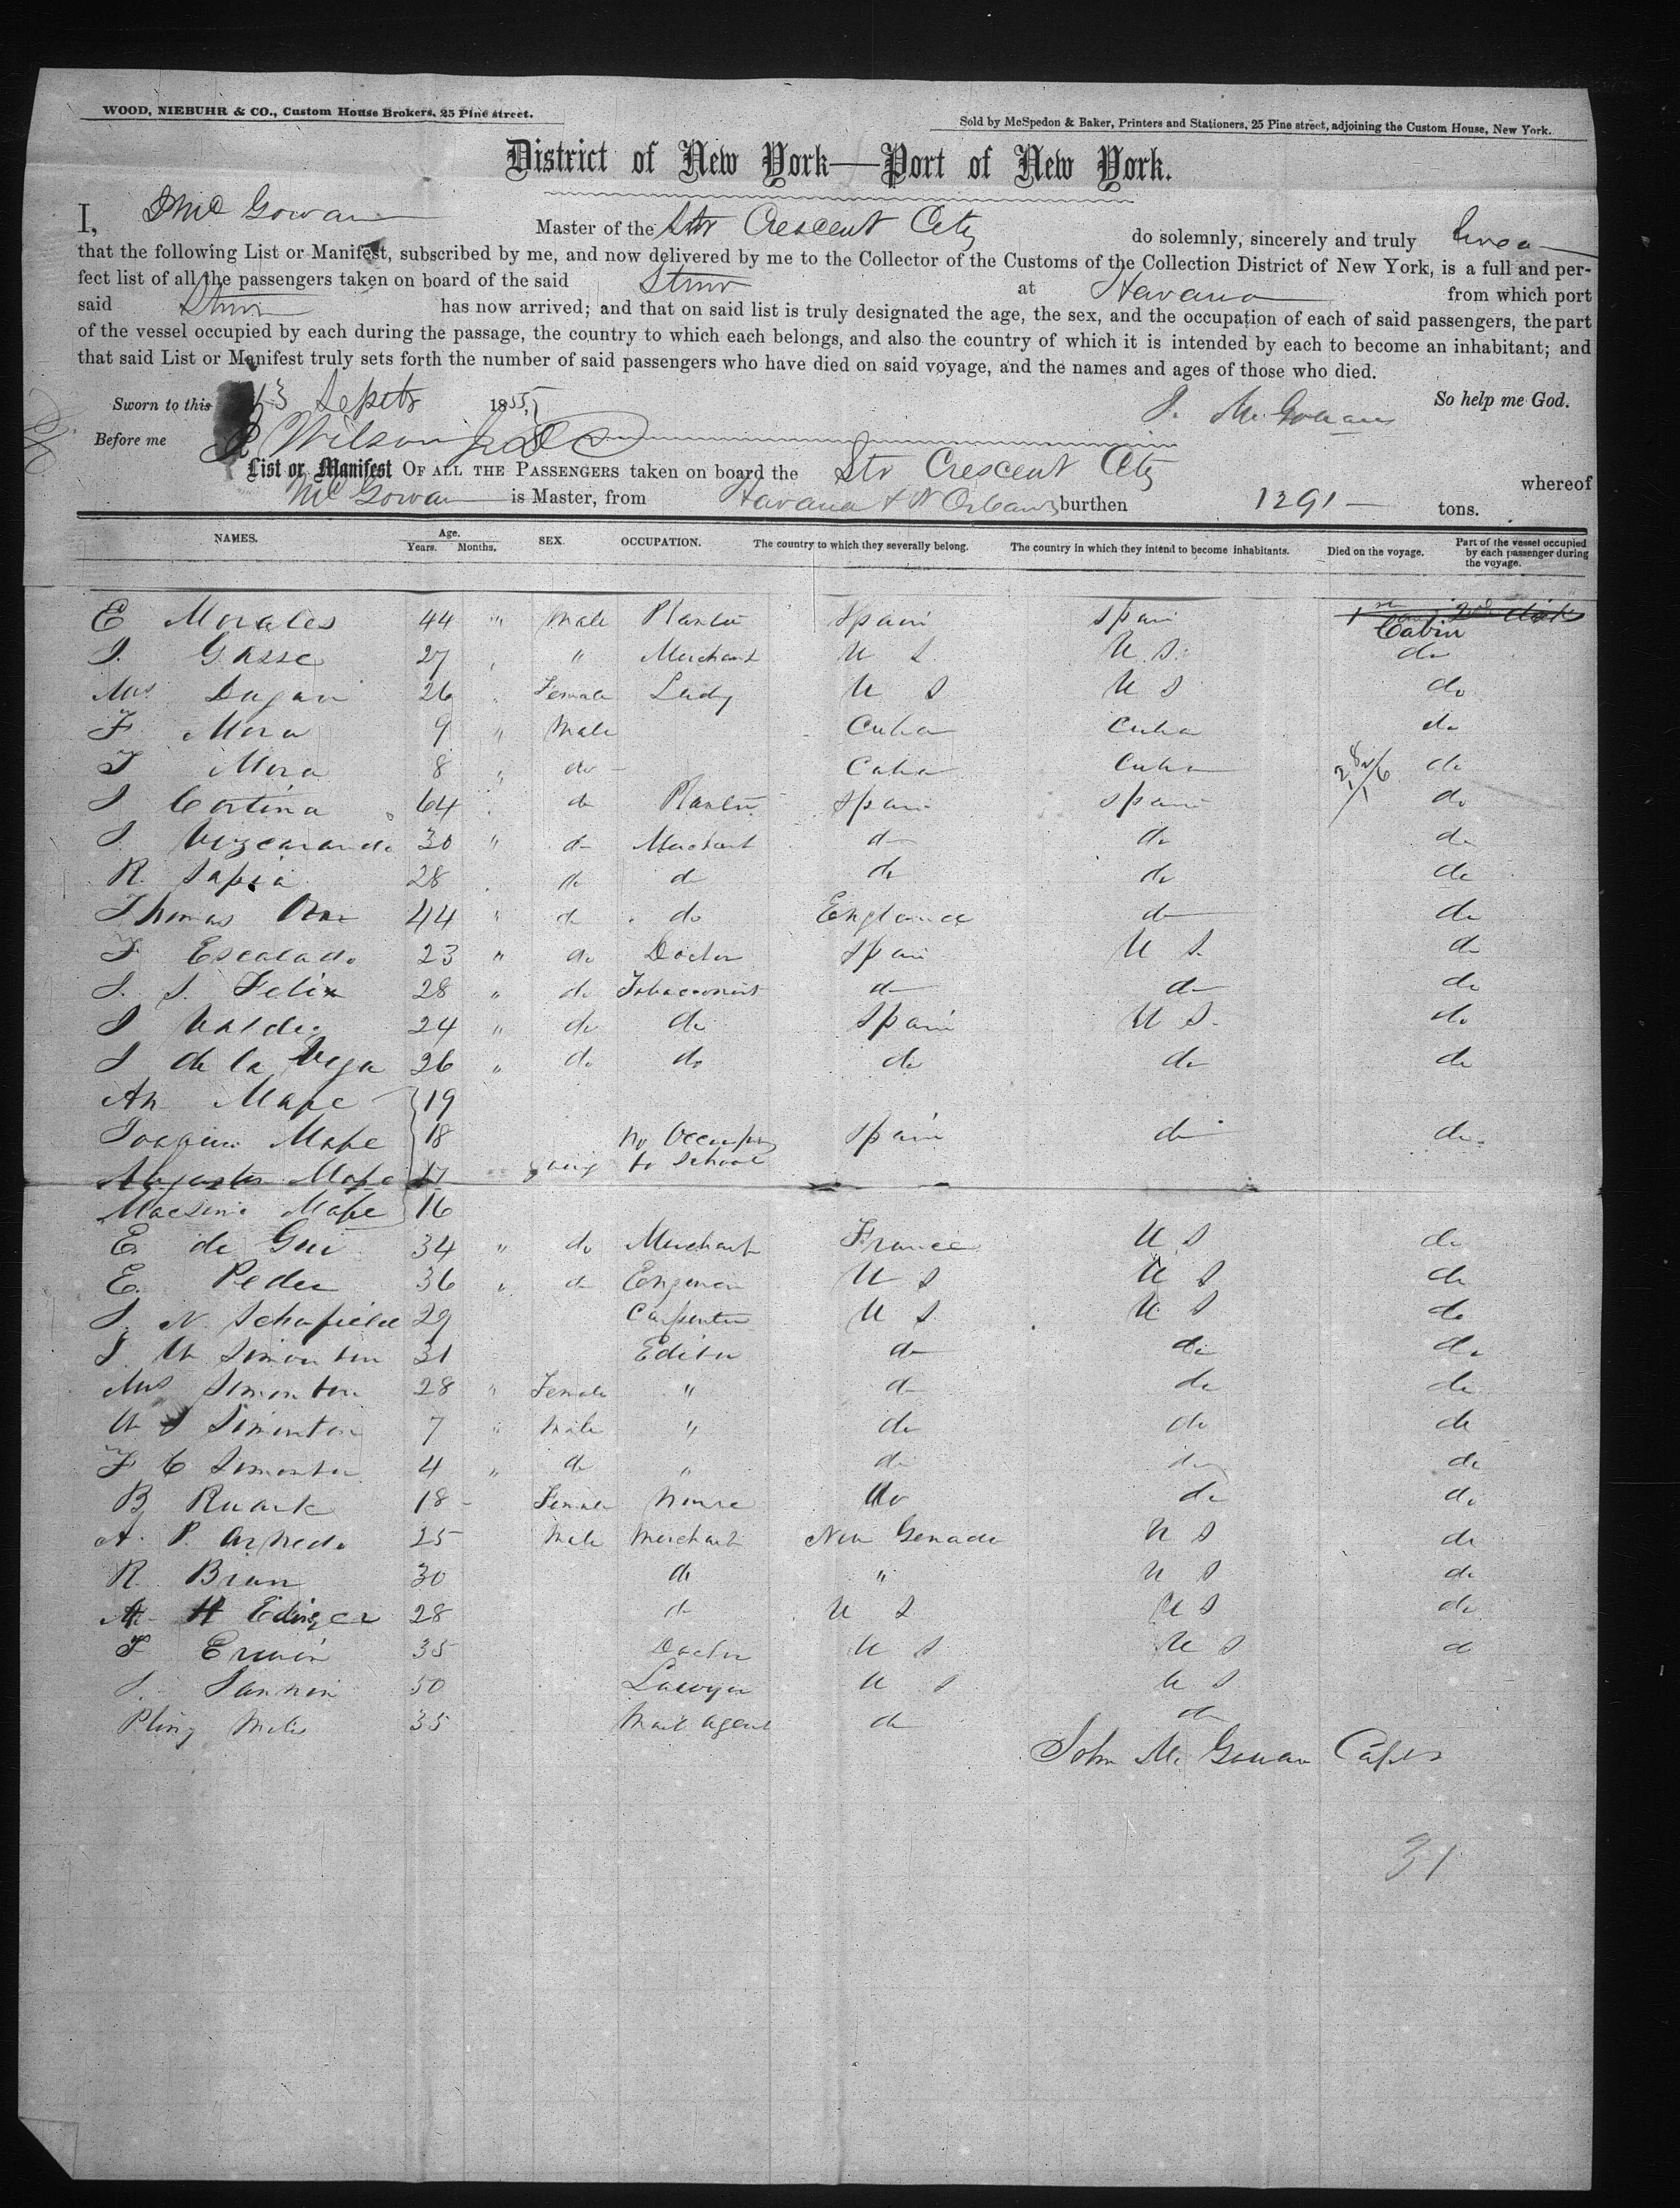 WOOD, NIEBUHR & CO., Custom House Brokers, 25 Pine street.
Sold by McSpedon & Baker, Printers and Stationers, 25 Pine street, adjoining the Custom House, New York.
District of New York—Port of New York.
I, J McGowan Master of the Str Crescent City do solemnly, sincerely and truly Swear
that the following List or Manifest, subscribed by me, and now delivered by me to the Collector of the Customs of the Collection District of New York, is a full and per-
fect list of all the passengers taken on board of the said Stmr at Havana from which port
said Stmr has now arrived; and that on said list is truly designated the age, the sex, and the occupation of each of said passengers, the part
of the vessel occupied by each during the passage, the country to which each belongs, and also the country of which it is intended by each to become an inhabitant; and
that said List or Manifest truly sets forth the number of said passengers who have died on said voyage, and the names and ages of those who died.
Sworn to this 13 Septr 1855, J. McGowan So help me God.
Before me Wilson
List or Manifest OF ALL THE PASSENGERS taken on board the Str Crescent City whereof
McGowan is Master, from Havana & N Orleans burthen 1291 tons.
NAMES. Age. Years. Months. SEX. OCCUPATION. The country to which they severally belong. The country in which they intend to become inhabitants. Died on the voyage. Part of the vessel occupied by each passenger during the voyage.
E Morales 44 " Male Planter Spain Spain Cabin
J. Gasse 27 " " Merchant U S U.S. do
Mrs Dugan 26 " Female Lady U S U S do
F. Mora 9 " Male Cuba Cuba do
J Mora 8 " do Cuba Cuba do
J Cortina 64 do Planter Spain Spain do
J. 30 " do Merchant do do do
R. Sapia 28 do do do do do
Thomas 44 " do do England do do
F Escalado 23 " do Doctor Spain U S. do
J. J. Felix 28 " do Tobacconist do do do
J Valdez 24 " do do Spain U S. do
J de la Vega 26 " do do do do do
An Mape 19
Joaquin Mape 18 no Occupn Spain do do
Augustus Mape 17 going to School
Mape 16
E. de Gui 34 " do Merchant France U S do
E. Peder 36 " do Engineer U S U S do
J. N. Schofield 29 Carpenter U S U S do
J W Simonton 31 Editor do do do
Mrs Simonton 28 " Female " do do do
W J Simonton 7 " Male " do do do
F C Simonton 4 " do " do do do
B Ruark 18 Female Nurse do do do
A. P. 25 Male Merchant New Grenada U S do
R. Brun 30 do " U S do
A H Edinger 28 do U S U S do
F Erwin 35 Doctor U S U S do
J. Sannon 50 Lawyer U S U S
Pliny Miles 35 Mail Agent do do
John McGowan Captn
31